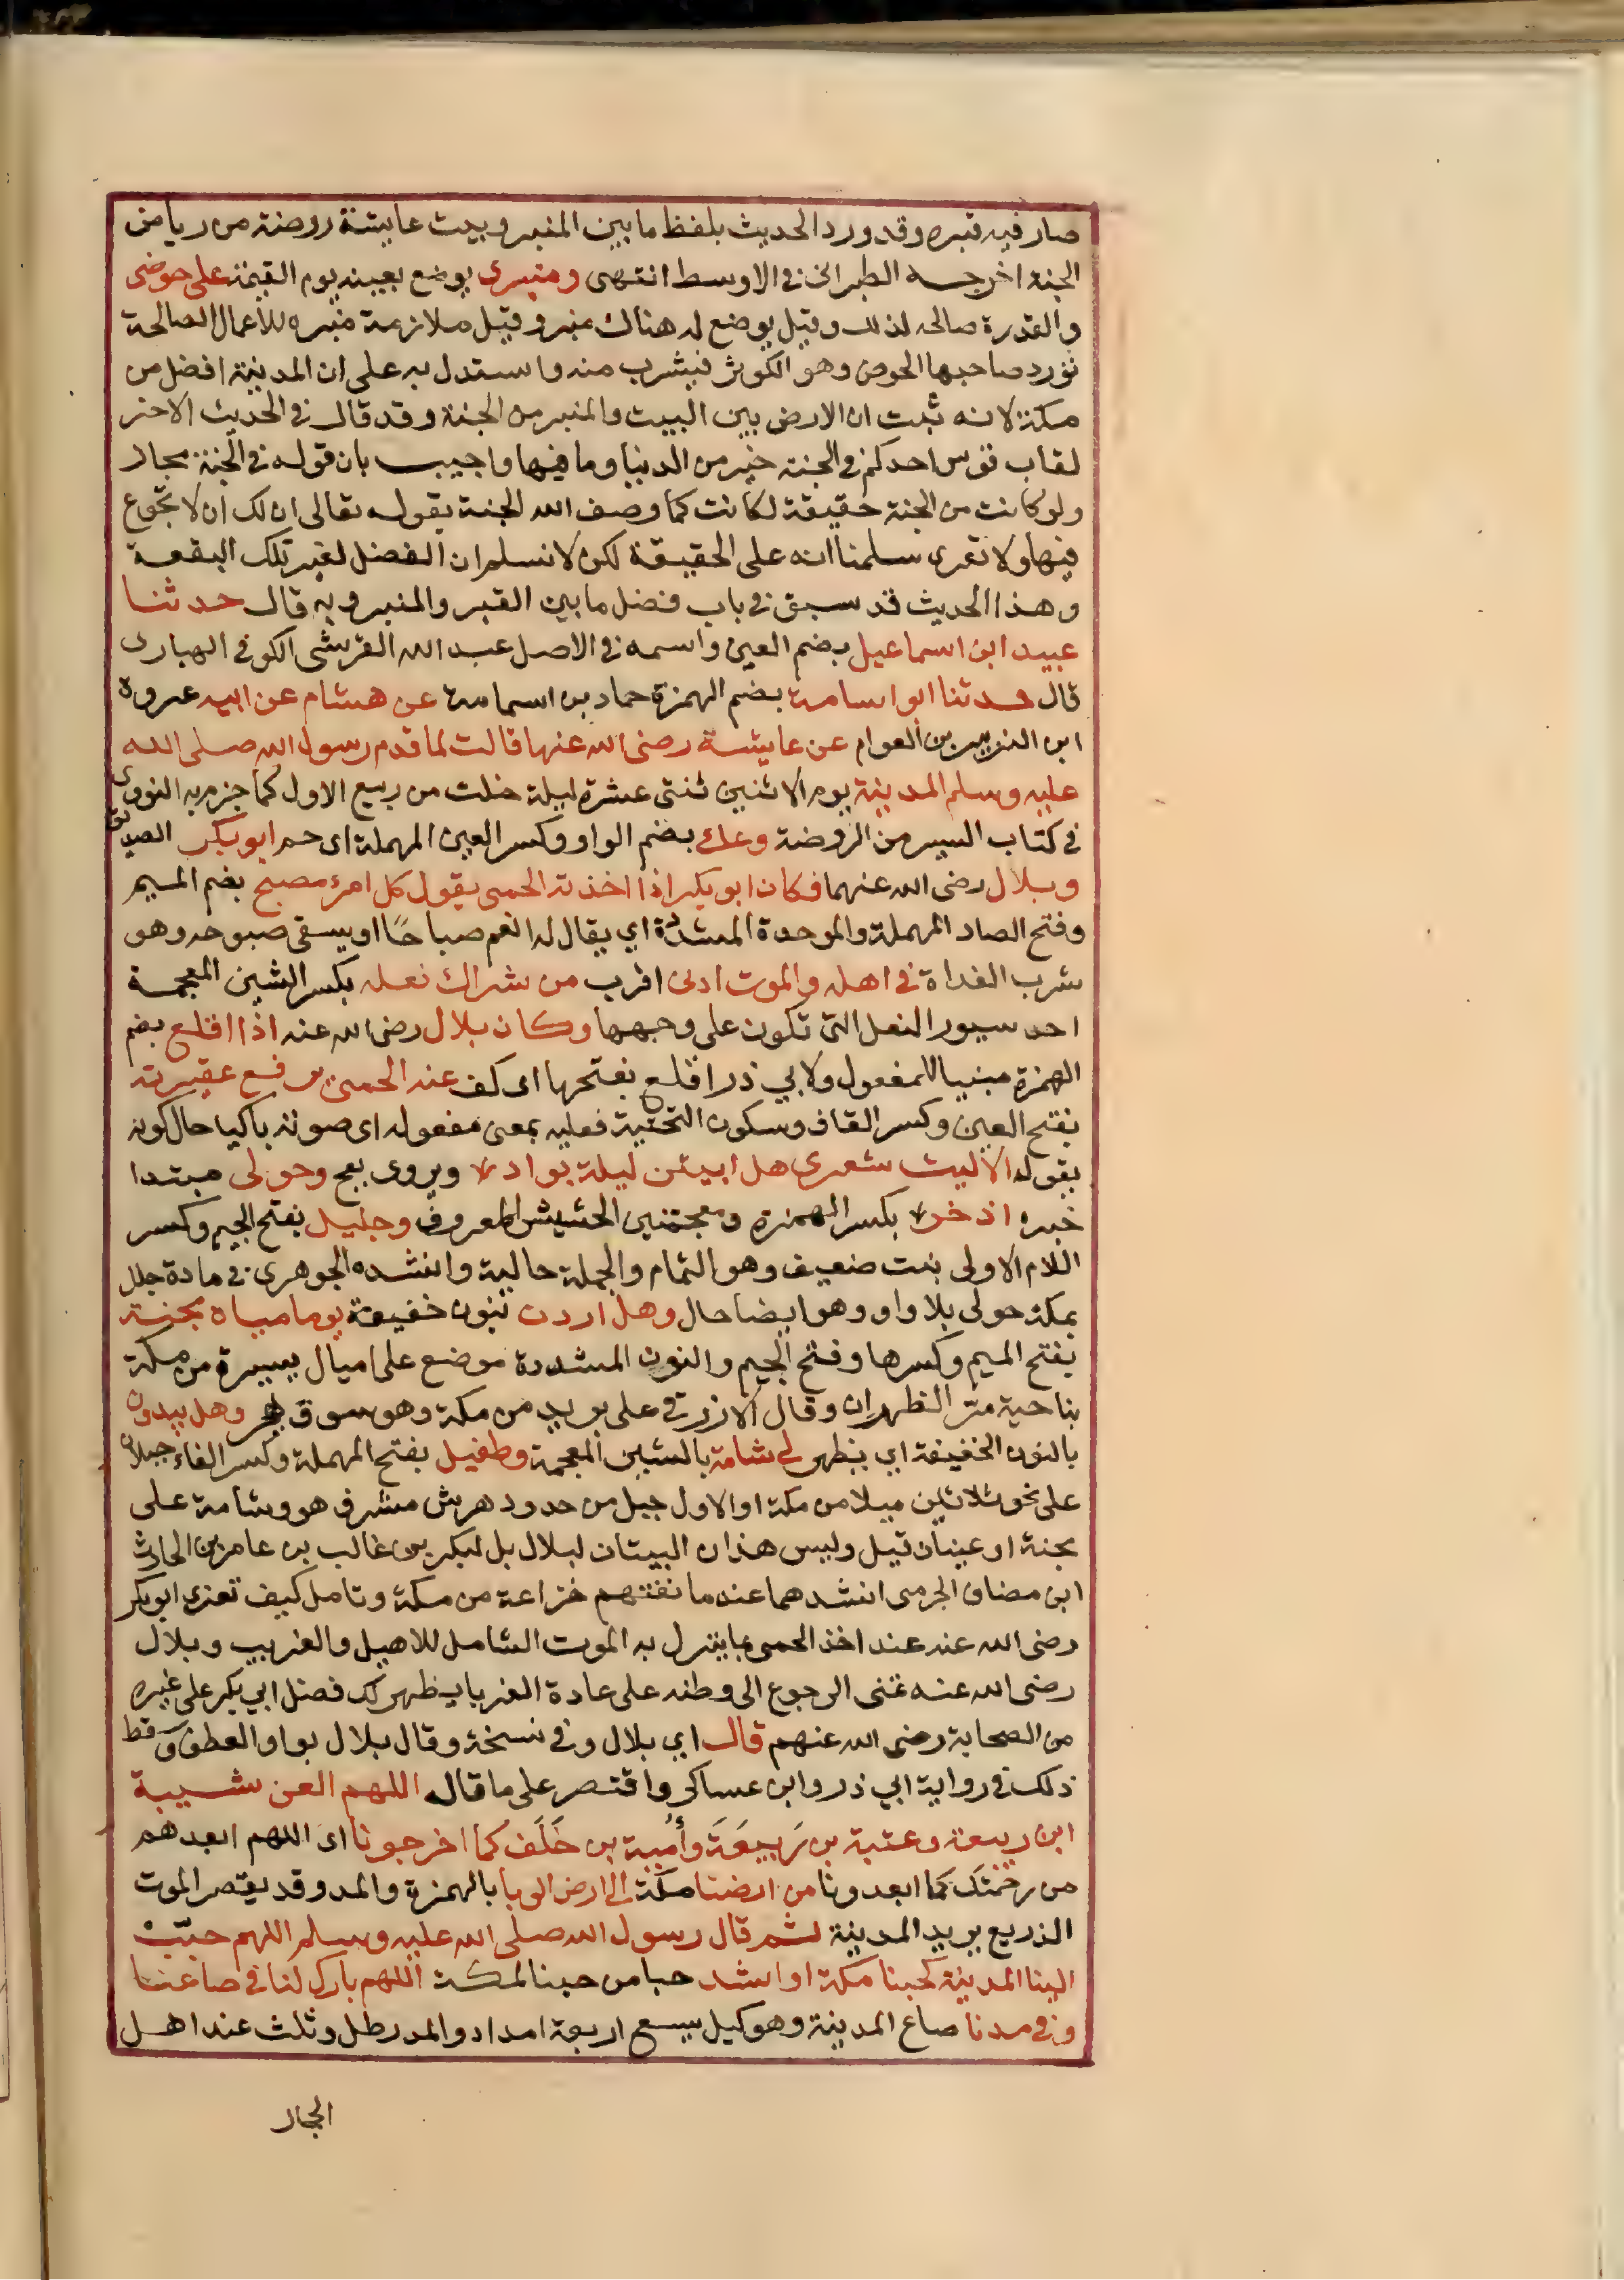 صار فيه قبره وقد ورد الحديث بلفظ ما بين المنبر وبيت عايشة روضة من رياض
الجنة اخرجه الطبراني في الاوسط انتهى ومنبرى يوضع بعينه يوم القيمة على حوضى
والقدرة صالحه لذلك وقيل يوضع له هناك منبر وقيل ملازمة منبره للاعمال الصالحة
تورد صاحبها الحوض وهو الكوثر فيشرب منه واستدل به على ان المدينة افضل من
مكة لانه ثبت ان الارض بين البيت والمنبر من الجنة وقد قال في الحديث الاخر
لقاب قوس احدكم في الجنة خير من الدنيا وما فيها واجيب بان قوله في الجنة مجاز
ولو كانت من الجنة حقيقة لكانت كما وصف الله الجنة بقوله تعالى ان لك ان لا تجوع
فيها ولا تعرى سلمنا انه على الحقيقة لكن لا نسلم ان الفضل لغير تلك البقعة
وهذا الحديث قد سبق في باب فضل ما بين القبر والمنبر وبه قال حدثنا
عبيد ابن اسماعيل بضم العين واسمه في الاصل عبد الله القرشى الكوفي الهبارى
قال حدثنا ابو اسامة بضم الهمزة حماد بن اسامة عن هشام عن ابيه عروة
ابن الزبير بن العوام عن عايشة رضى الله عنها قالت لما قدم رسول الله صلى الله
عليه وسلم المدينة يوم الاثنين ثنتى عشرة ليلة خلت من ربيع الاول كما جزم به النووى
في كتاب السير من الروضة وعك بضم الواو وكسر العين المهملة اى حم ابو بكر الصديق
وبلال رضى الله عنهما فكان ابو بكر اذا اخذته الحمى يقول كل امرئ مصبح بضم الميم
وفتح الصاد المهملة والموحدة المشددة اي يقال له انعم صباحا او يسقى صبوحه وهو
شرب الغداة في اهله والموت ادنى اقرب من شراك نعله بكسر الشين المعجمة
احد سيور النعل التى تكون على وجهها وكان بلال رضى الله عنه اذا اقلع بضم
الهمزة مبنيا للمفعول ولابي ذر اقلع بفتحها اى كف عنه الحمى يرفع عقيرته
بفتح العين وكسر القاف وسكون التحتية فعليه بمعنى مفعوله اى صوته باكيا حال كونه
يقول الاليت شعرى هل ابيتن ليلة بواد ويروى بفج وحولى مبتدا
خبره اذخر بكسر الهمزة ومعجمتين الحشيش المعروف وجليل بفتح الجيم وكسر
اللام الاولى نبت ضعيف وهو الثمام والجملة حالية وانشده الجوهرى في مادة جلل
بمكة حولى بلا واو وهو ايضا حال وهل اردن بنون خفيفة يوما مياه مجنة
بفتح الميم وكسرها وفتح الجيم والنون المشددة موضع على اميال يسيرة من مكة
بناحية مر الظهران وقال الازرقي على بريد من مكة وهو سوق هجر وهل يبدون
بالنون الخفيفة اي يظهر لي شامة بالشين المعجمة وطفيل بفتح المهملة وكسر الفاء جبلان
على نحو ثلاثين ميلا من مكة او الاول جبل من حدود هرش مشرف هو وشامة على
مجنة او عينان قيل وليس هذان البيتان لبلال بل لبكر بن غالب بن عامر بن الحارث
ابن مضاض الجرمى انشدهما عند ما نفتهم خزاعة من مكة وتامل كيف تعزى ابو بكر
رضى الله عنه عند اخذ الحمى بما ينزل به الموت الشامل للاهيل والغريب وبلال
رضى الله عنه تمنى الرجوع الى وطنه على عادة الغربا يظهر لك فضل ابي بكر على غيره
من الصحابة رضى الله عنهم قال اي بلال وفي نسخة وقال بلال بواو العطف وسقط
ذلك في رواية ابي ذر وابن عساكر واقتصر على ما قاله اللهم العن شيبة
ابن ربيعة وعتبة بن رَبِيعَةَ وأُمية بن خَلَف كما اخرجونا اى اللهم ابعدهم
من رحمتك كما ابعدونا من ارضنا مكة الى ارض الوبا بالهمزة والمد وقد يقتصر الموت
الذريع يريد المدينة ثم قال رسول الله صلى الله عليه وسلم اللهم حبّب
الينا المدينة كحبنا مكة او اشد حبا من حبنا لمكة اللهم بارك لنا في صاعنا
وفي مدنا صاع المدينة وهو كيل يسع اربعة امداد والمد رطل وثلث عند اهل
الحجاز